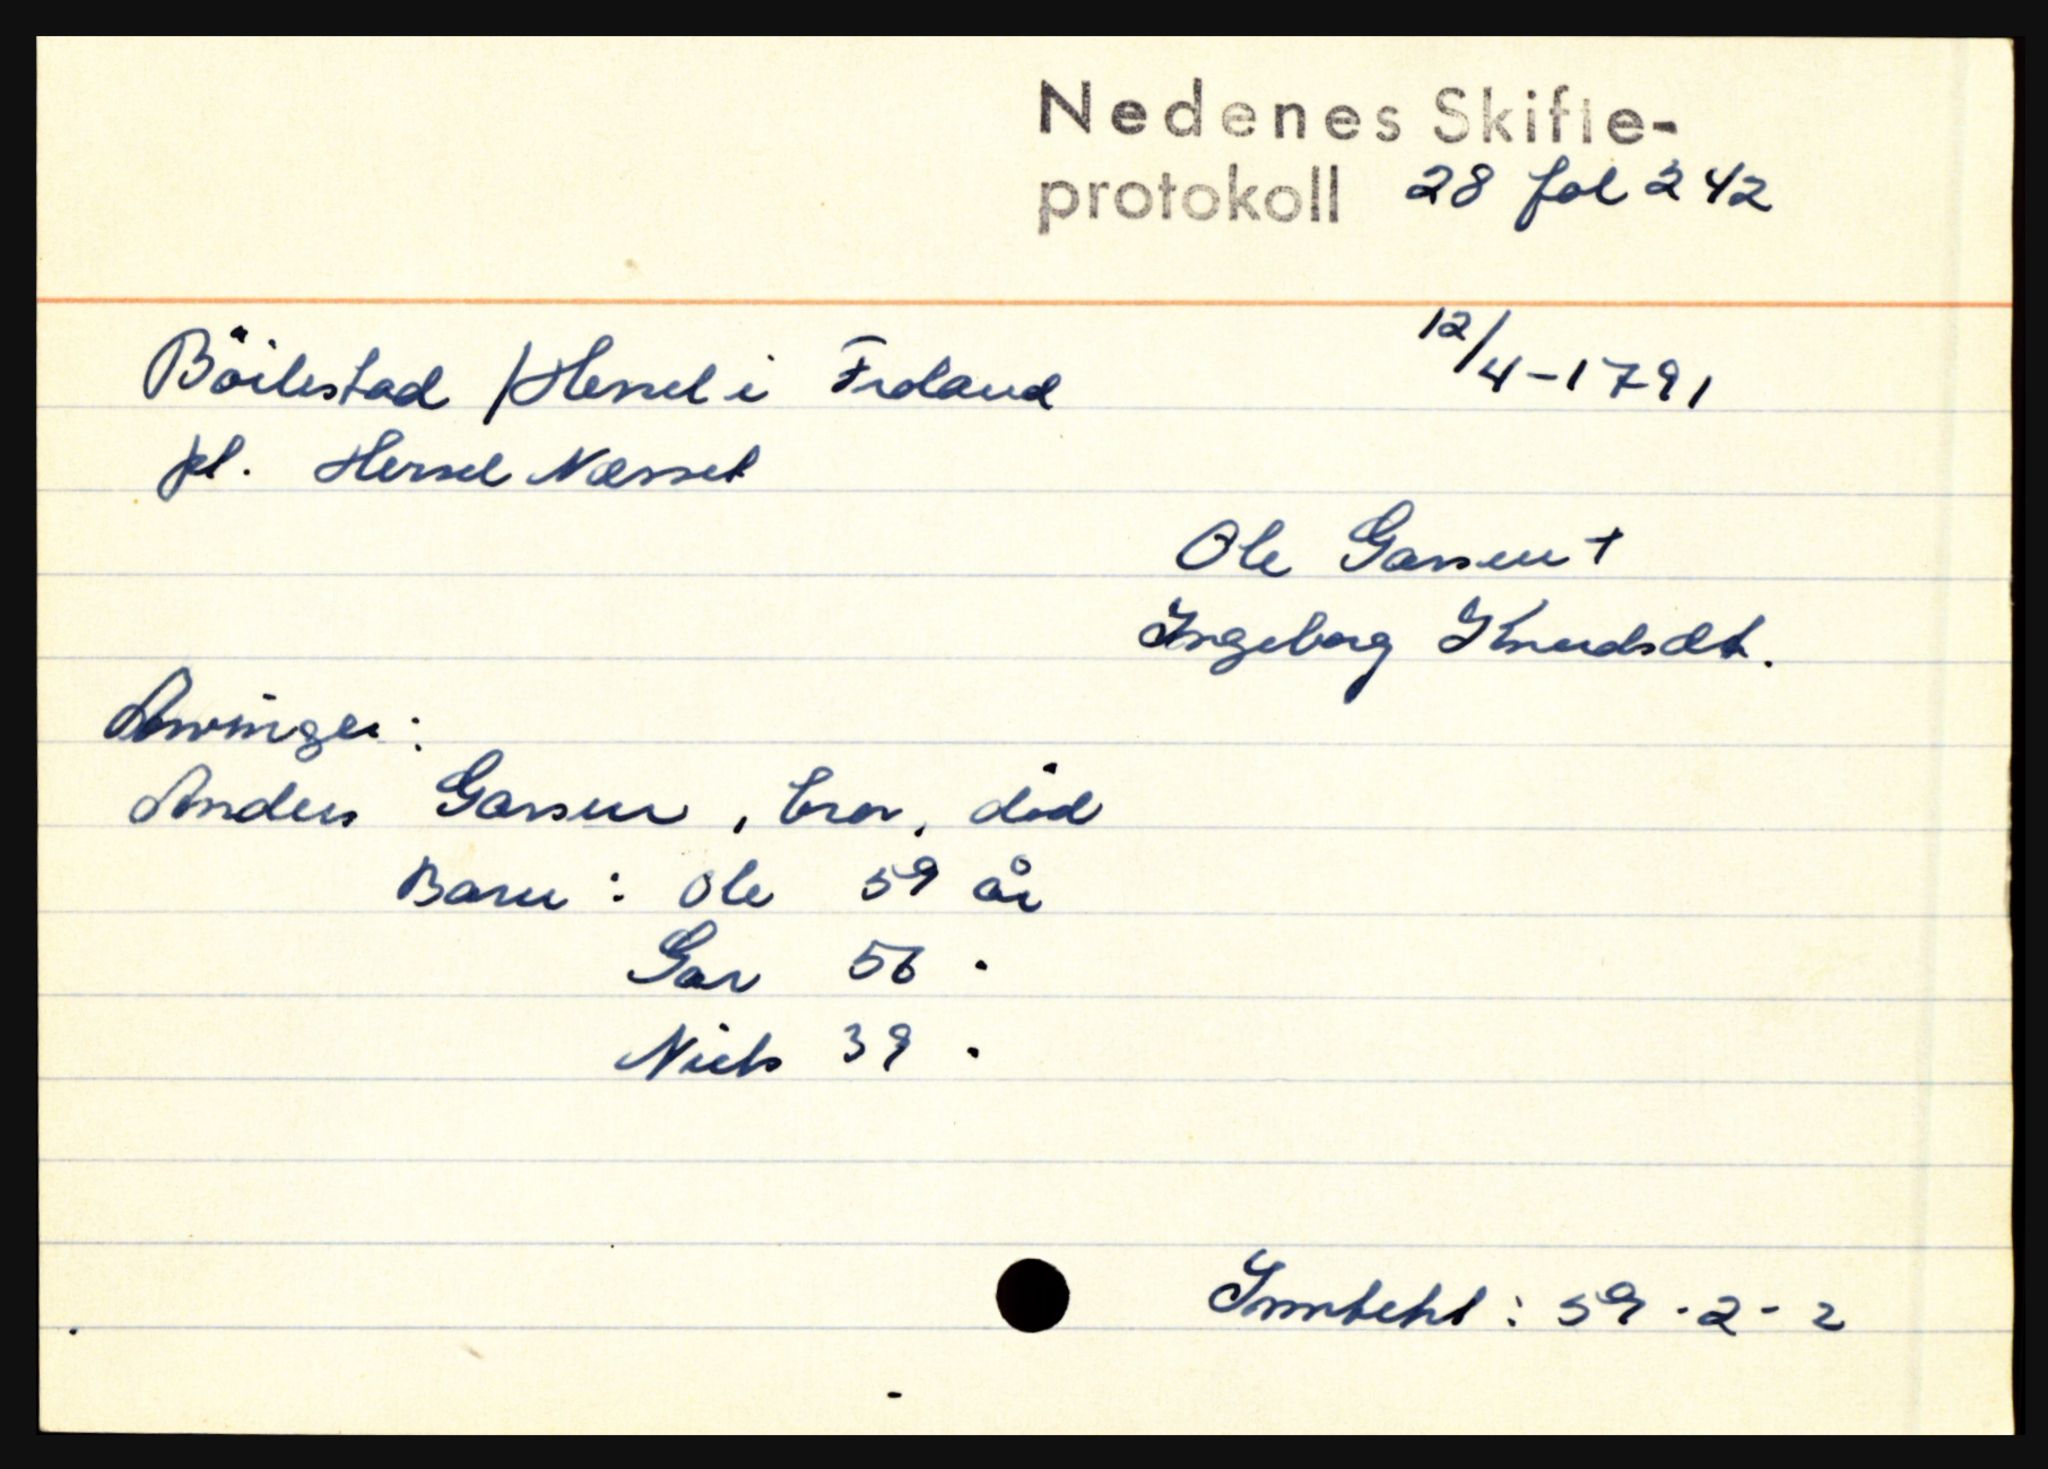 Nedenes Skifte-
protokoll 28 fol 242
Böilestad /Hessel i Froland 12/4-1791
pl. Hessel Næsset
Ole Garsen +
Ingeborg Knudsdt.
Arvinger:
Anders Garsen, bror, död
Barn: Ole 59 år
Gar 56 "
Niels 39 "
Inntekt: 59-2-2